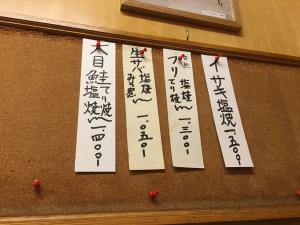 イサキ塩焼 一、五〇〇
ブリてり焼 一、三〇〇
生サバ塩焼 みそ煮 一、〇五〇
本目鮭 てり焼 塩焼 一、四〇〇